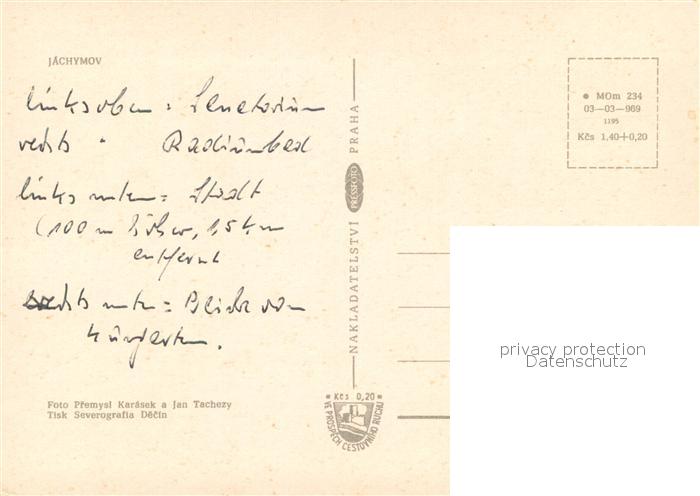 JÁCHYMOV
links oben = Senatorium
rechts " Radiumbad
links unten = Stadt
(100 m höher, 1,5 km
entfernt
rechts unten = Blick vom
Kurgarten.
Foto Přemysl Karásek a Jan Tachezy
Tisk Severografia Děčín
NAKLADATELSTVÍ PRESSFOTO PRAHA
Kčs 0,20
VE PROSPĚCH CESTOVNÍHO RUCHU
MOm 234
03—03—969
1195
Kčs 1,40+0,20
privacy protection
Datenschutz